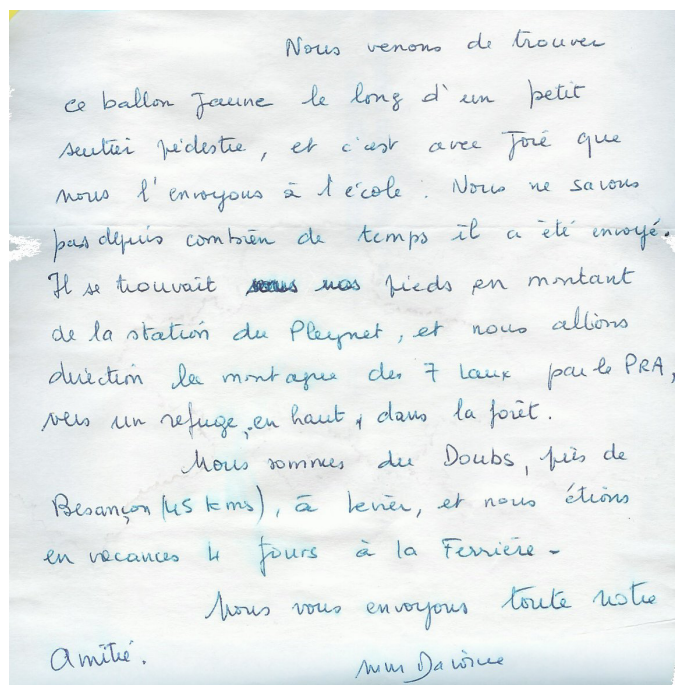 Nous venons de trouver
ce ballon Jaune le long d'un petit
sentier pédestre, et c'est avec Joie que
nous l'envoyons à l'école. Nous ne savons
pas depuis combien de temps il a été envoyé.
Il se trouvait sous nos pieds en montant
de la station du Pleynet, et nous allions
direction la montagne des 7 Laux par le PRA,
vers un refuge, en haut, dans la forêt.
Nous sommes du Doubs, près de
Besançon (45 kms), à Levier, et nous étions
en vacances 4 Jours à la Ferrière -
Nous vous envoyons toute notre
Amitié.